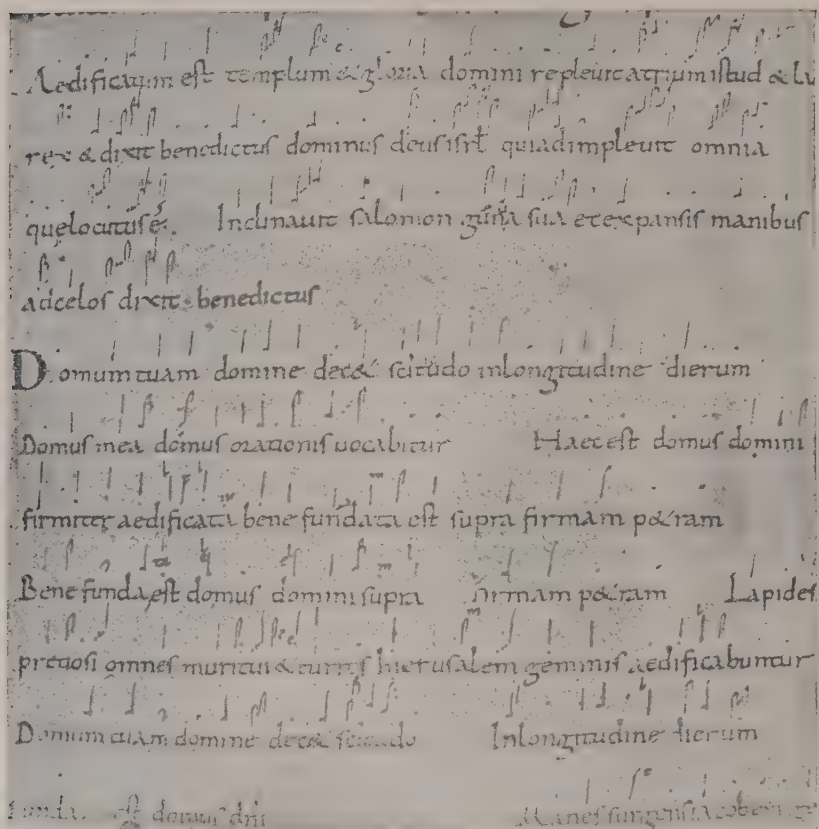 Aedificatum est templum & gloria domini repleuit atrium istud & lu
rex & dixit benedictus dominus deus isrł quiadimpleuit omnia
quelocutusē. Inclinauit salomon genua sua et expansis manibus
adcelos dixit benedictus
Domum tuam domine dec& scitudo inlongitudine dierum
Domus mea domus orationis uocabitur Haec est domus domini
firmiter aedificata bene fundata est supra firmam p&ram
Bene funda est domus domini supra firmam p&ram Lapides
pretiosi omnes muri tui & turres hierusalem gemmis aedificabuntur
Domum tuam domine dec& scitudo Inlongitudine dierum
funda. est domus dni Manes surgens iacob